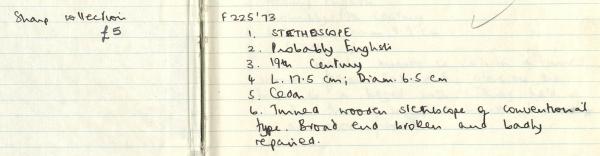 Sharp collection
£5
F225'73
1. STETHESCOPE
2. Probably English
3. 19th Century
4 L. 17.5 cm; Diam. 6.5 cm
5. Cedar
6. Turned wooden stethoscope of conventional
type. Broad end broken and badly
repaired.